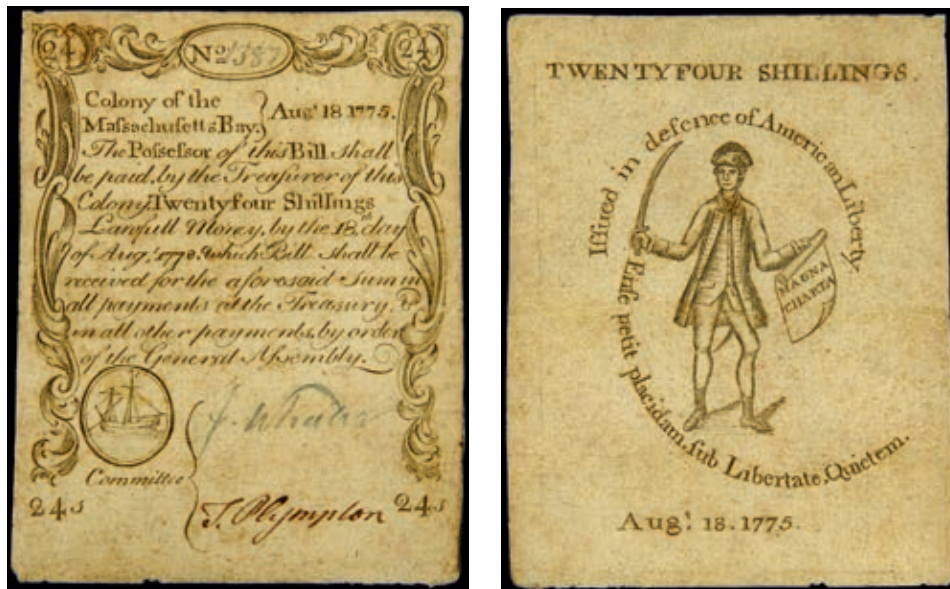 24s
No 1387
24s
Colony of the
Maſsachusetts Bay.
Augt. 18. 1775.
The Poſseſsor of this Bill shall
be paid, by the Treasurer of this
Colony, Twentyfour Shillings
Lawfull Money, by the 18th. day
of Aug.t 1778. which Bill shall be
received for the aforesaid sum in
all payments at the Treasury, &
in all other payments, by order
of the General Aſsembly.
Committee
J. Wheeler
24s
24s
TWENTYFOUR SHILLINGS.
Iſſued in defence of American Liberty.
Enſe petit placidam, ſub Libertate, Quietem.
MAGNA
CHARTA
Augt. 18. 1775.